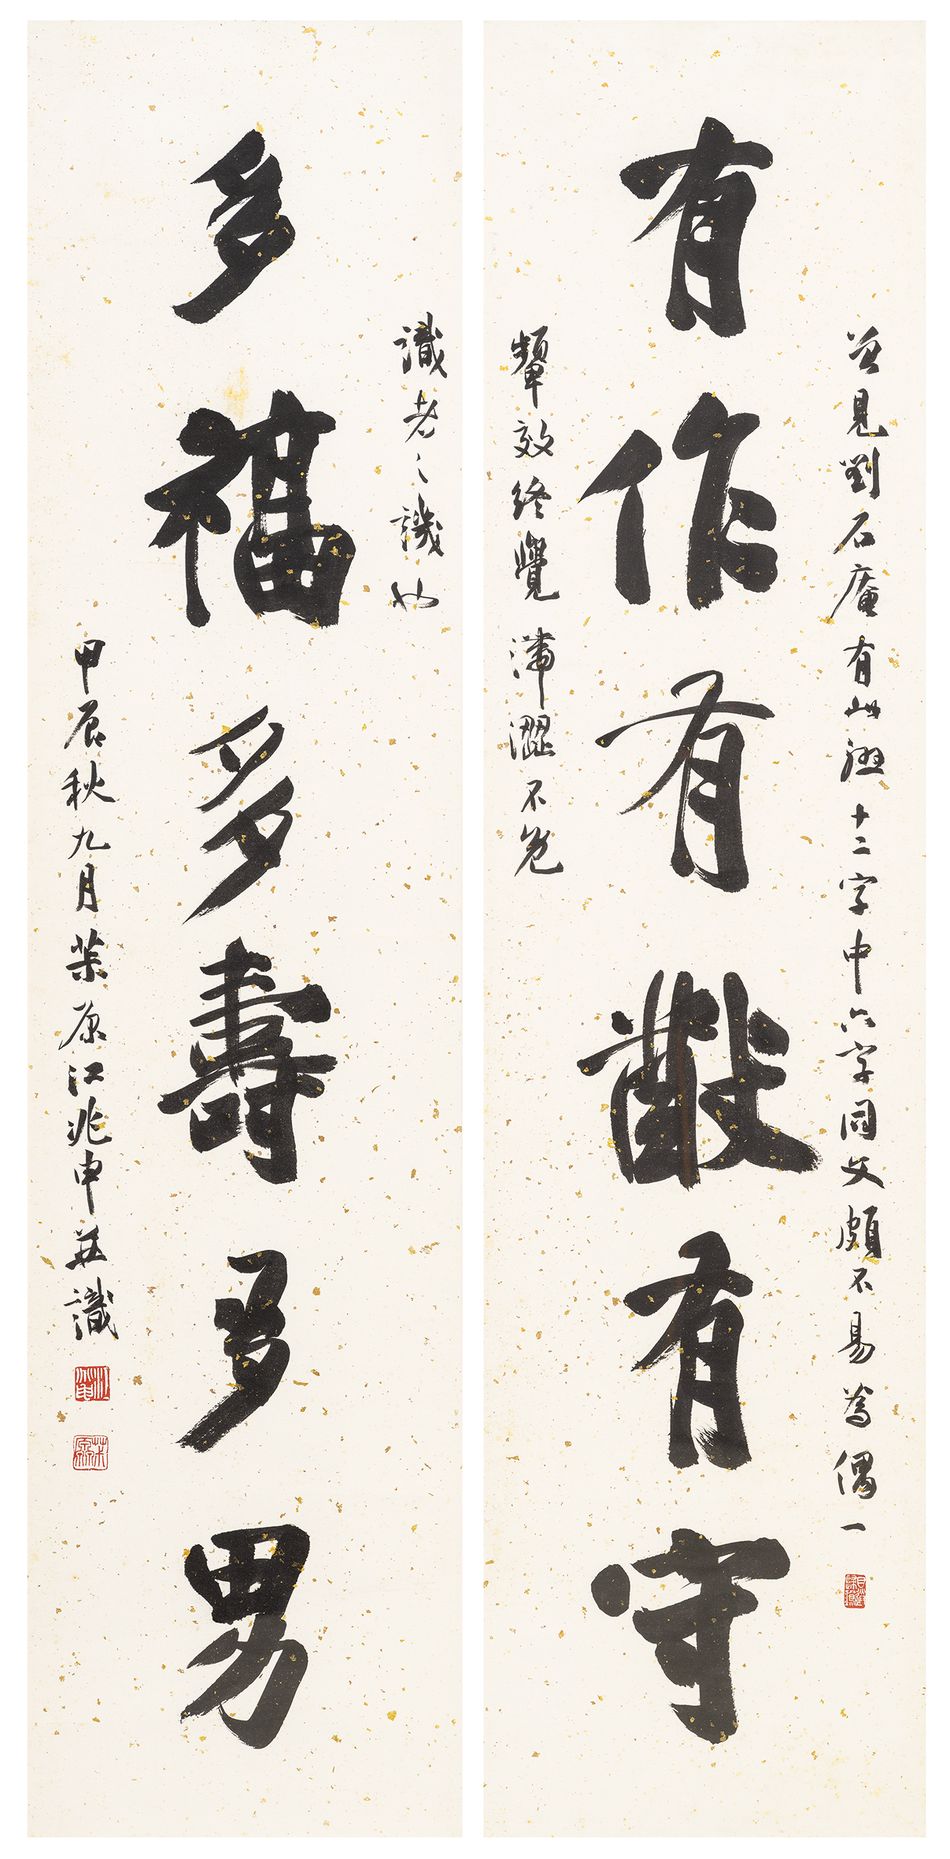 曾見劉石庵有此聯十二字中六字同文頗不易為偶一
有作有猷有守
顰效終覺滯澀不免
識者之譏也
多福多壽多男
甲辰秋九月茮原江兆申並識
茮原